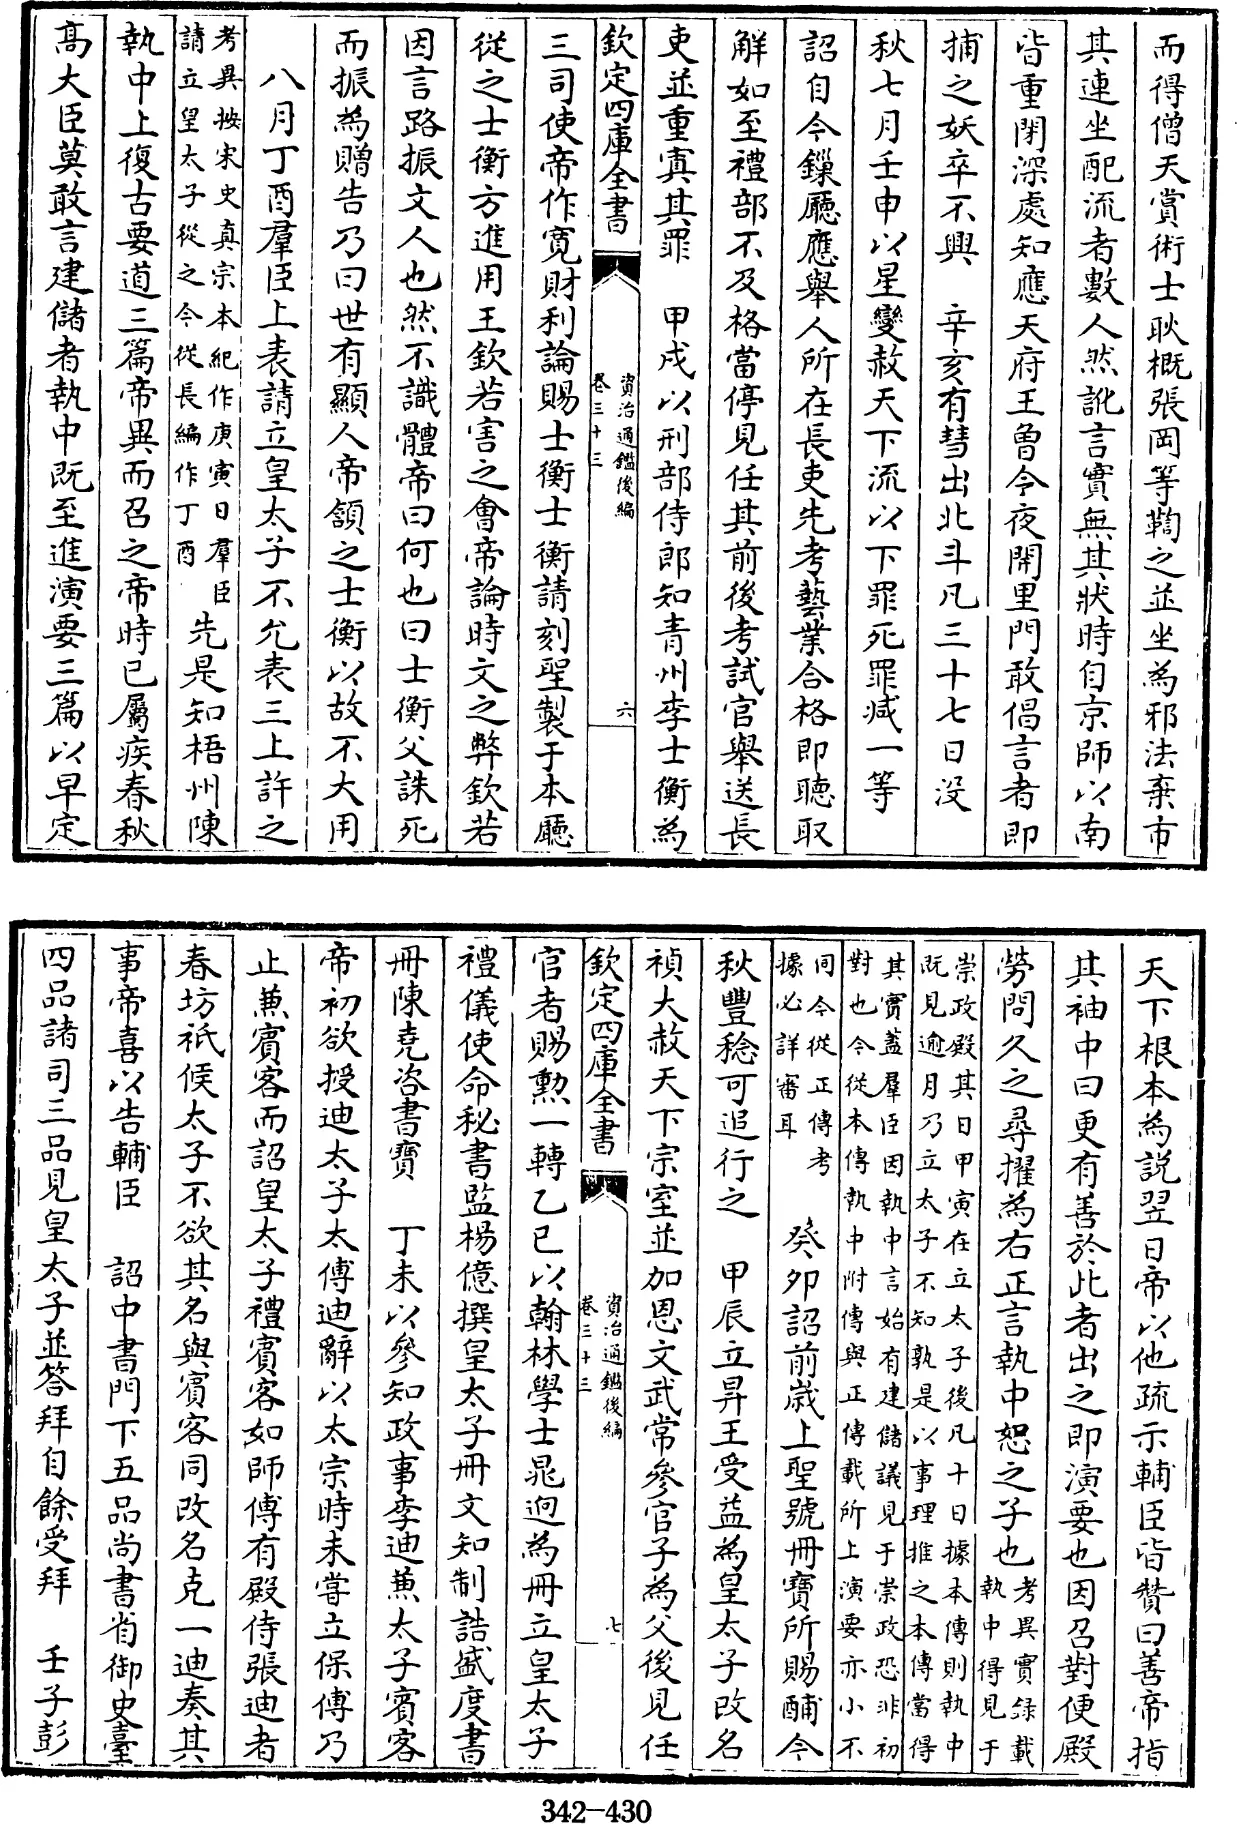 而得僧天賞術士耿概張岡等鞫之並坐為邪法棄市
其連坐配流者數人然訛言實無其狀時自京師以南
皆重閉深處知應天府王曾令夜開里門敢倡言者即
捕之妖卒不興　辛亥有彗出北斗凡三十七日没
秋七月壬申以星變赦天下流以下罪死罪減一等
詔自今鏁廳應舉人所在長吏先考藝業合格即聽取
解如至禮部不及格當停見任其前後考試官舉送長
吏並重寘其罪　甲戌以刑部侍郎知青州李士衡為
欽定四庫全書
資治通鑑後編
卷三十三
六
三司使帝作寛財利論賜士衡士衡請刻聖製于本廳
從之士衡方進用王欽若害之會帝論時文之弊欽若
因言路振文人也然不識體帝曰何也曰士衡父誅死
而振為贈告乃曰世有顯人帝頷之士衡以故不大用
八月丁酉羣臣上表請立皇太子不允表三上許之
考異按宋史真宗本紀作庚寅日羣臣
請立皇太子從之今從長編作丁酉
先是知梧州陳
執中上復古要道三篇帝異而召之帝時已屬疾春秋
髙大臣莫敢言建儲者執中既至進演要三篇以早定
天下根本為説翌日帝以他疏示輔臣皆贊曰善帝指
其袖中曰更有善於此者出之即演要也因召對便殿
勞問久之尋擢為右正言執中恕之子也
考異實録載
執中得見于
崇政殿其日甲寅在立太子後凡十日據本傳則執中
既見逾月乃立太子不知孰是以事理推之本傳當得
其實蓋羣臣因執中言始有建儲議見于崇政恐非初
對也今從本傳執中附傳與正傳載所上演要亦小不
同今從正傳考
據必詳審耳
癸卯詔前歲上聖號冊寶所賜酺今
秋豐稔可追行之　甲辰立昇王受益為皇太子改名
禎大赦天下宗室並加恩文武常參官子為父後見任
欽定四庫全書
資治通鑑後編
卷三十三
七
官者賜勲一轉乙巳以翰林學士晁迥為冊立皇太子
禮儀使命秘書監楊億撰皇太子冊文知制誥盛度書
冊陳堯咨書寶　丁未以參知政事李迪兼太子賓客
帝初欲授迪太子太傅迪辭以太宗時未嘗立保傅乃
止兼賓客而詔皇太子禮賓客如師傅有殿侍張迪者
春坊祇候太子不欲其名與賓客同改名克一迪奏其
事帝喜以告輔臣　詔中書門下五品尚書省御史臺
四品諸司三品見皇太子並答拜自餘受拜　壬子彭
342-430